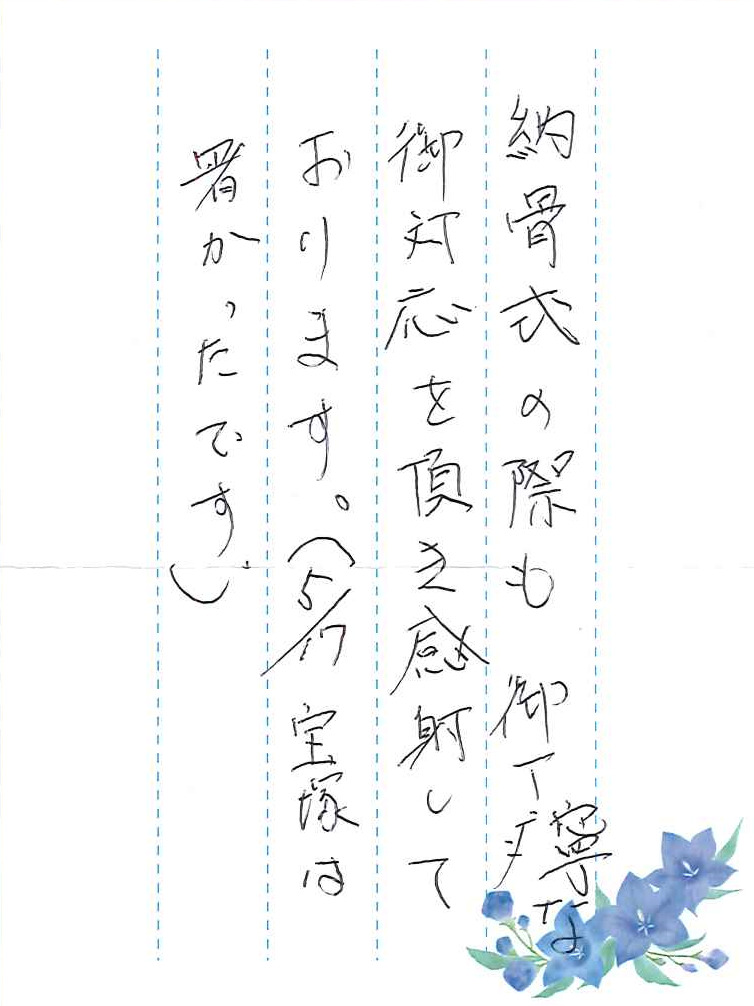 納骨式の際も 御丁寧な
御対応を頂き感射して
おります。(5/17 宝塚は
署かったです)